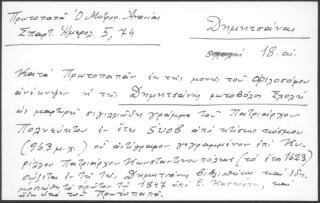 Πρωτοπαπᾶ Ὁ Μητροπ. Ἀνανίας
Σπαρτ. Ἡμερολ. 5, 74
Δημητσάνα
18. αἰ.
Κατὰ Πρωτοπαπᾶν ἐκ τῆς μονῆς τοῦ Φιλοσόφου
ἀνέκυψεν ἡ τῆς Δημητσάνης Σχολὴ
ὡς μαρτυρεῖ σιγιλλιῶδες γράμμα τοῦ Πατριάρχου
Πολυεύκτου ἐν ἔτει ἀπὸ κτίσεως κόσμου
(963 μ.χ.) οὗ ἀντίγραφον γεγραμμένον ἐπὶ Κυ-
ρίλλου Πατριάρχου Κωνσταντινουπόλεως (τὸ ἔτος 1623)
σώζεται ἐν τῇ τῆς Δημητσάνης βιβλιοθήκῃ καὶ ἐδη-
μοσιεύθη πρῶτον τῷ 1847 ὑπὸ Ε. Καστόρχη, καὶ
ὑπὸ τοῦ Πρωτοπαπᾶ.